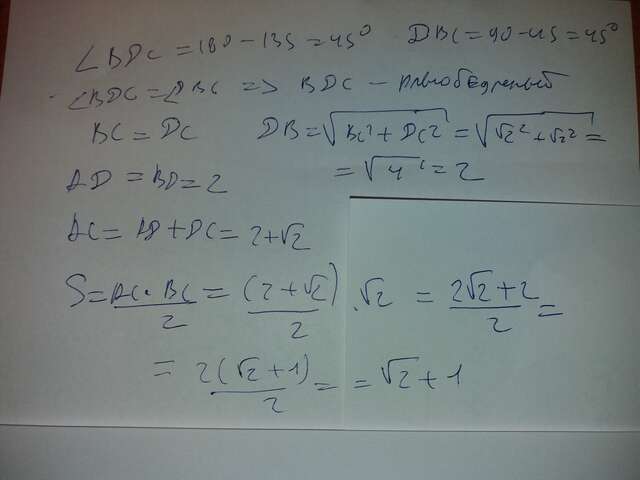 ∠BDC = 180 − 135 = 45° DBC = 90 − 45 = 45°
∠BDC = ∠DBC => BDC − равнобедренный
BC = DC DB = √(BC² + DC²) = √(√2² + √2²) =
= √4 = 2
AD = BD = 2
AC = AD + DC = 2 + √2
S = AC · BC / 2 = (2 + √2) / 2 · √2 = 2√2 + 2 / 2 =
= 2(√2 + 1) / 2 = = √2 + 1